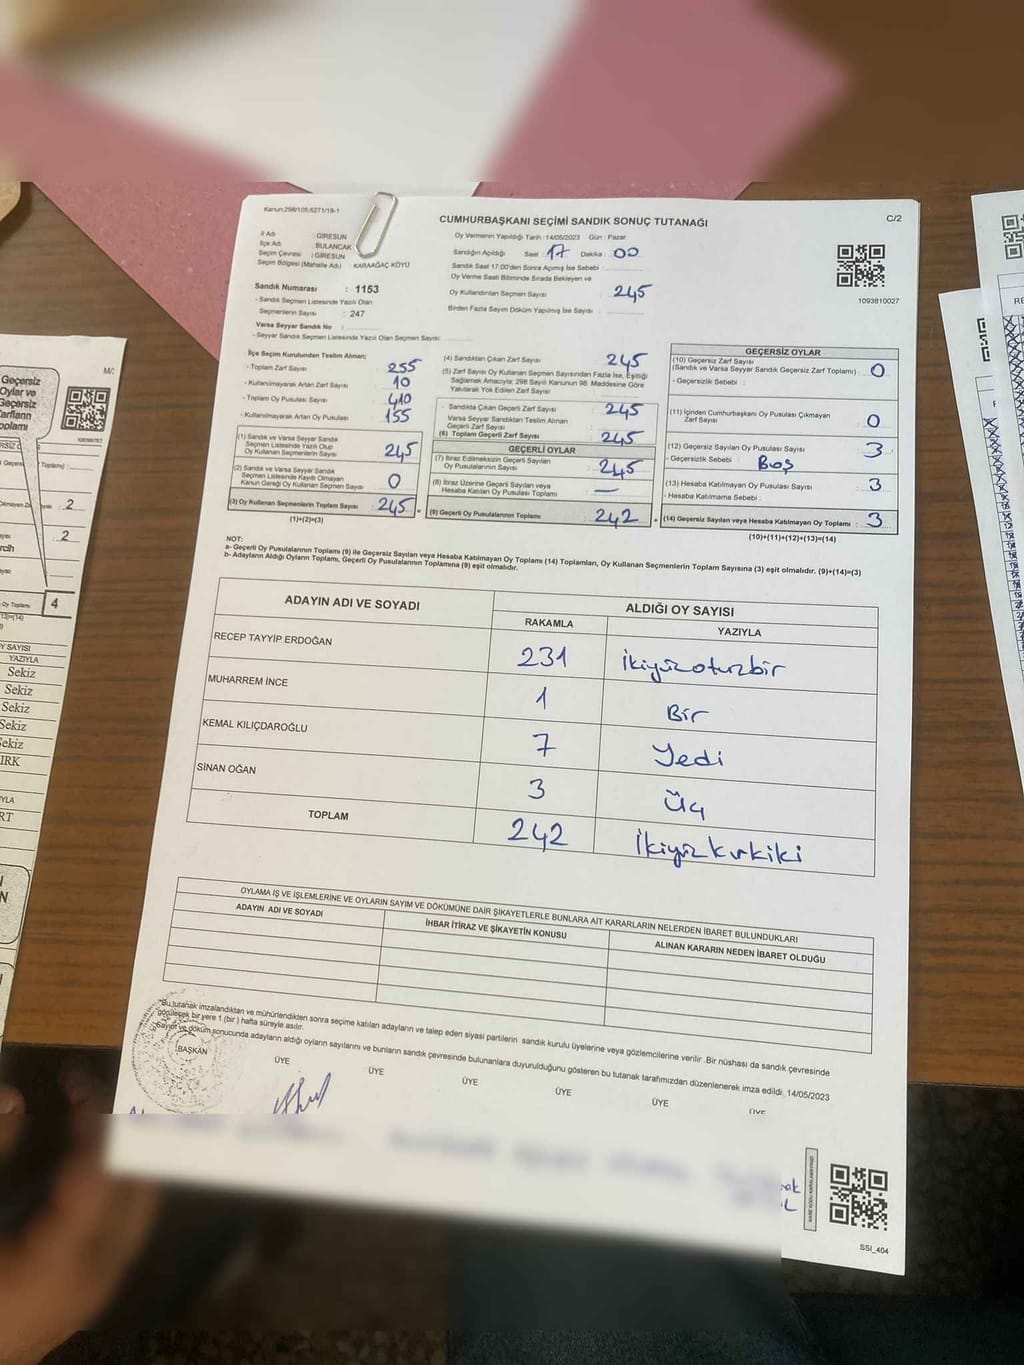 Kanun:298/105,6271/18-1
CUMHURBAŞKANI SEÇİMİ SANDIK SONUÇ TUTANAĞI
C/2
İl Adı : GİRESUN
İlçe Adı : BULANCAK
Seçim Çevresi : GİRESUN
Seçim Bölgesi (Mahalle Adı) : KARAAĞAÇ KÖYÜ
Oy Vermenin Yapıldığı Tarih :14/05/2023 Gün : Pazar
Sandığın Açıldığı Saat : 17 Dakika : 00
Sandık Saat 17:00'den Sonra Açımış İse Sebebi :
Oy Verme Saati Bitiminde Sırada Bekleyen ve
Oy Kullandırılan Seçmen Sayısı : 245
Birden Fazla Sayım Döküm Yapılmış İse Sayısı :
1093810027
Sandık Numarası : 1153
- Sandık Seçmen Listesinde Yazılı Olan
Seçmenlerin Sayısı : 247
Varsa Seyyar Sandık No :
- Seyyar Sandık Seçmen Listesinde Yazılı Olan Seçmen Sayısı :
İlçe Seçim Kurulundan Teslim Alınan;
- Toplam Zarf Sayısı : 255
- Kullanılmayarak Artan Zarf Sayısı : 10
- Toplam Oy Pusulası Sayısı : 410
- Kullanılmayarak Artan Oy Pusulası : 155
(1) Sandık ve Varsa Seyyar Sandık
Seçmen Listesinde Yazılı Olup
Oy Kullanan Seçmenlerin Sayısı : 245
(2) Sandık ve Varsa Seyyar Sandık
Seçmen Listesinde Kayıtlı Olmayan
Kanun Gereği Oy Kullanan Seçmen Sayısı : 0
(3) Oy Kullanan Seçmenlerin Toplam Sayısı : 245 =
(1)+(2)=(3)
(4) Sandıktan Çıkan Zarf Sayısı : 245
(5) Zarf Sayısı Oy Kullanan Seçmen Sayısından Fazla İse, Eşitliği
Sağlamak Amacıyla; 298 Sayılı Kanunun 98. Maddesine Göre
Yakılarak Yok Edilen Zarf Sayısı :
- Sandıkta Çıkan Geçerli Zarf Sayısı : 245
Varsa Seyyar Sandıktan Teslim Alınan
Geçerli Zarf Sayısı :
(6) Toplam Geçerli Zarf Sayısı : 245
GEÇERLİ OYLAR
(7) İtiraz Edilmeksizin Geçerli Sayılan
Oy Pusulalarının Sayısı : 245
(8) İtiraz Üzerine Geçerli Sayılan veya
Hesaba Katılan Oy Pusulası Toplamı : —
(9) Geçerli Oy Pusulalarının Toplamı : 242 +
GEÇERSİZ OYLAR
(10) Geçersiz Zarf Sayısı
(Sandık ve Varsa Seyyar Sandık Geçersiz Zarf Toplamı) : 0
- Geçersizlik Sebebi :
(11) İçinden Cumhurbaşkanı Oy Pusulası Çıkmayan
Zarf Sayısı : 0
(12) Geçersiz Sayılan Oy Pusulası Sayısı : 3
- Geçersizlik Sebebi : Boş
(13) Hesaba Katılmayan Oy Pusulası Sayısı : 3
- Hesaba Katılmama Sebebi :
(14) Geçersiz Sayılan veya Hesaba Katılmayan Oy Toplamı : 3
(10)+(11)+(12)+(13)=(14)
NOT:
a- Geçerli Oy Pusulalarının Toplamı (9) ile Geçersiz Sayılan veya Hesaba Katılmayan Oy Toplamı (14) Toplamları, Oy Kullanan Seçmenlerin Toplam Sayısına (3) eşit olmalıdır. (9)+(14)=(3)
b- Adayların Aldığı Oyların Toplamı, Geçerli Oy Pusulalarının Toplamına (9) eşit olmalıdır.
ADAYIN ADI VE SOYADI ALDIĞI OY SAYISI
RAKAMLA YAZIYLA
RECEP TAYYİP ERDOĞAN 231 ikiyüzotuzbir
MUHARREM İNCE 1 Bir
KEMAL KILIÇDAROĞLU 7 Yedi
SİNAN OĞAN 3 Üç
TOPLAM 242 İkiyüzkırkiki
OYLAMA İŞ VE İŞLEMLERİNE VE OYLARIN SAYIM VE DÖKÜMÜNE DAİR ŞİKAYETLERLE BUNLARA AİT KARARLARIN NELERDEN İBARET BULUNDUKLARI
ADAYIN ADI VE SOYADI İHBAR İTİRAZ VE ŞİKAYETİN KONUSU ALINAN KARARIN NEDEN İBARET OLDUĞU
*Bu tutanak imzalandıktan ve mühürlendikten sonra seçime katılan adayların ve talep eden siyasi partilerin sandık kurulu üyelerine veya gözlemcilerine verilir. Bir nüshası da sandık çevresinde
görülecek bir yere 1 (bir) hafta süreyle asılır.
*Sayım ve döküm sonucunda adayların aldığı oyların sayılarını ve bunların sandık çevresinde bulunanlara duyurulduğunu gösteren bu tutanak tarafımızdan düzenlenerek imza edildi. 14/05/2023
BAŞKAN ÜYE ÜYE ÜYE ÜYE ÜYE ÜYE
SSI_404
Geçersiz
Oylar ve
Geçersiz
Zarfların
2
2
4
OY SAYISI
YAZIYLA
Sekiz
Sekiz
Sekiz
Sekiz
Sekiz